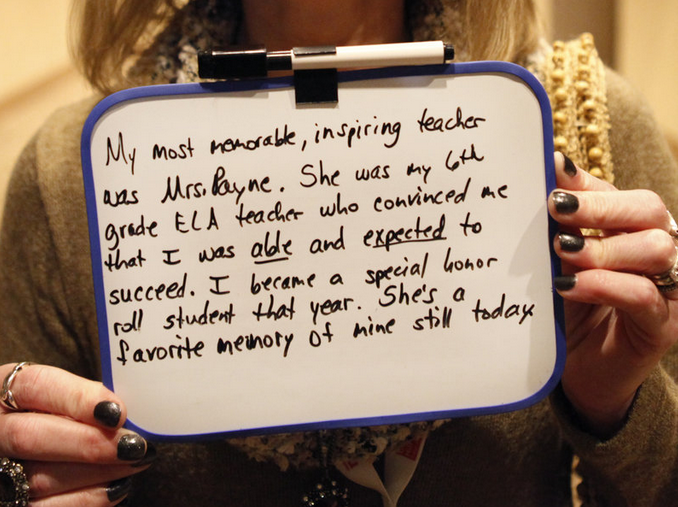 My most memorable, inspiring teacher
was Mrs. Payne. She was my 6th
grade ELA teacher who convinced me
that I was able and expected to
succeed. I became a special honor
roll student that year. She's a
favorite memory of mine still today.